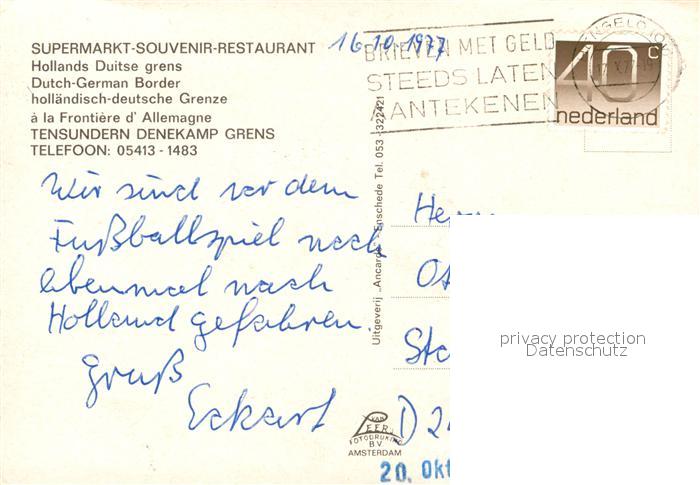 SUPERMARKT-SOUVENIR-RESTAURANT
Hollands Duitse grens
Dutch-German Border
holländisch-deutsche Grenze
à la Frontière d' Allemagne
TENSUNDERN DENEKAMP GRENS
TELEFOON: 05413-1483
16.10.1977
BRIEVEN MET GELD
STEEDS LATEN
AANTEKENEN
40 c
nederland
Wir sind vor dem
Fußballspiel noch
nach
Holland gefahren.
Gruß
Eckart
Uitgeverij „Ancarde" - Enschede Tel. 053-322421
Herrn
D 2
VAN LEER's
FOTODRUKIND.
B.V.
AMSTERDAM
20. Okt
privacy protection
Datenschutz